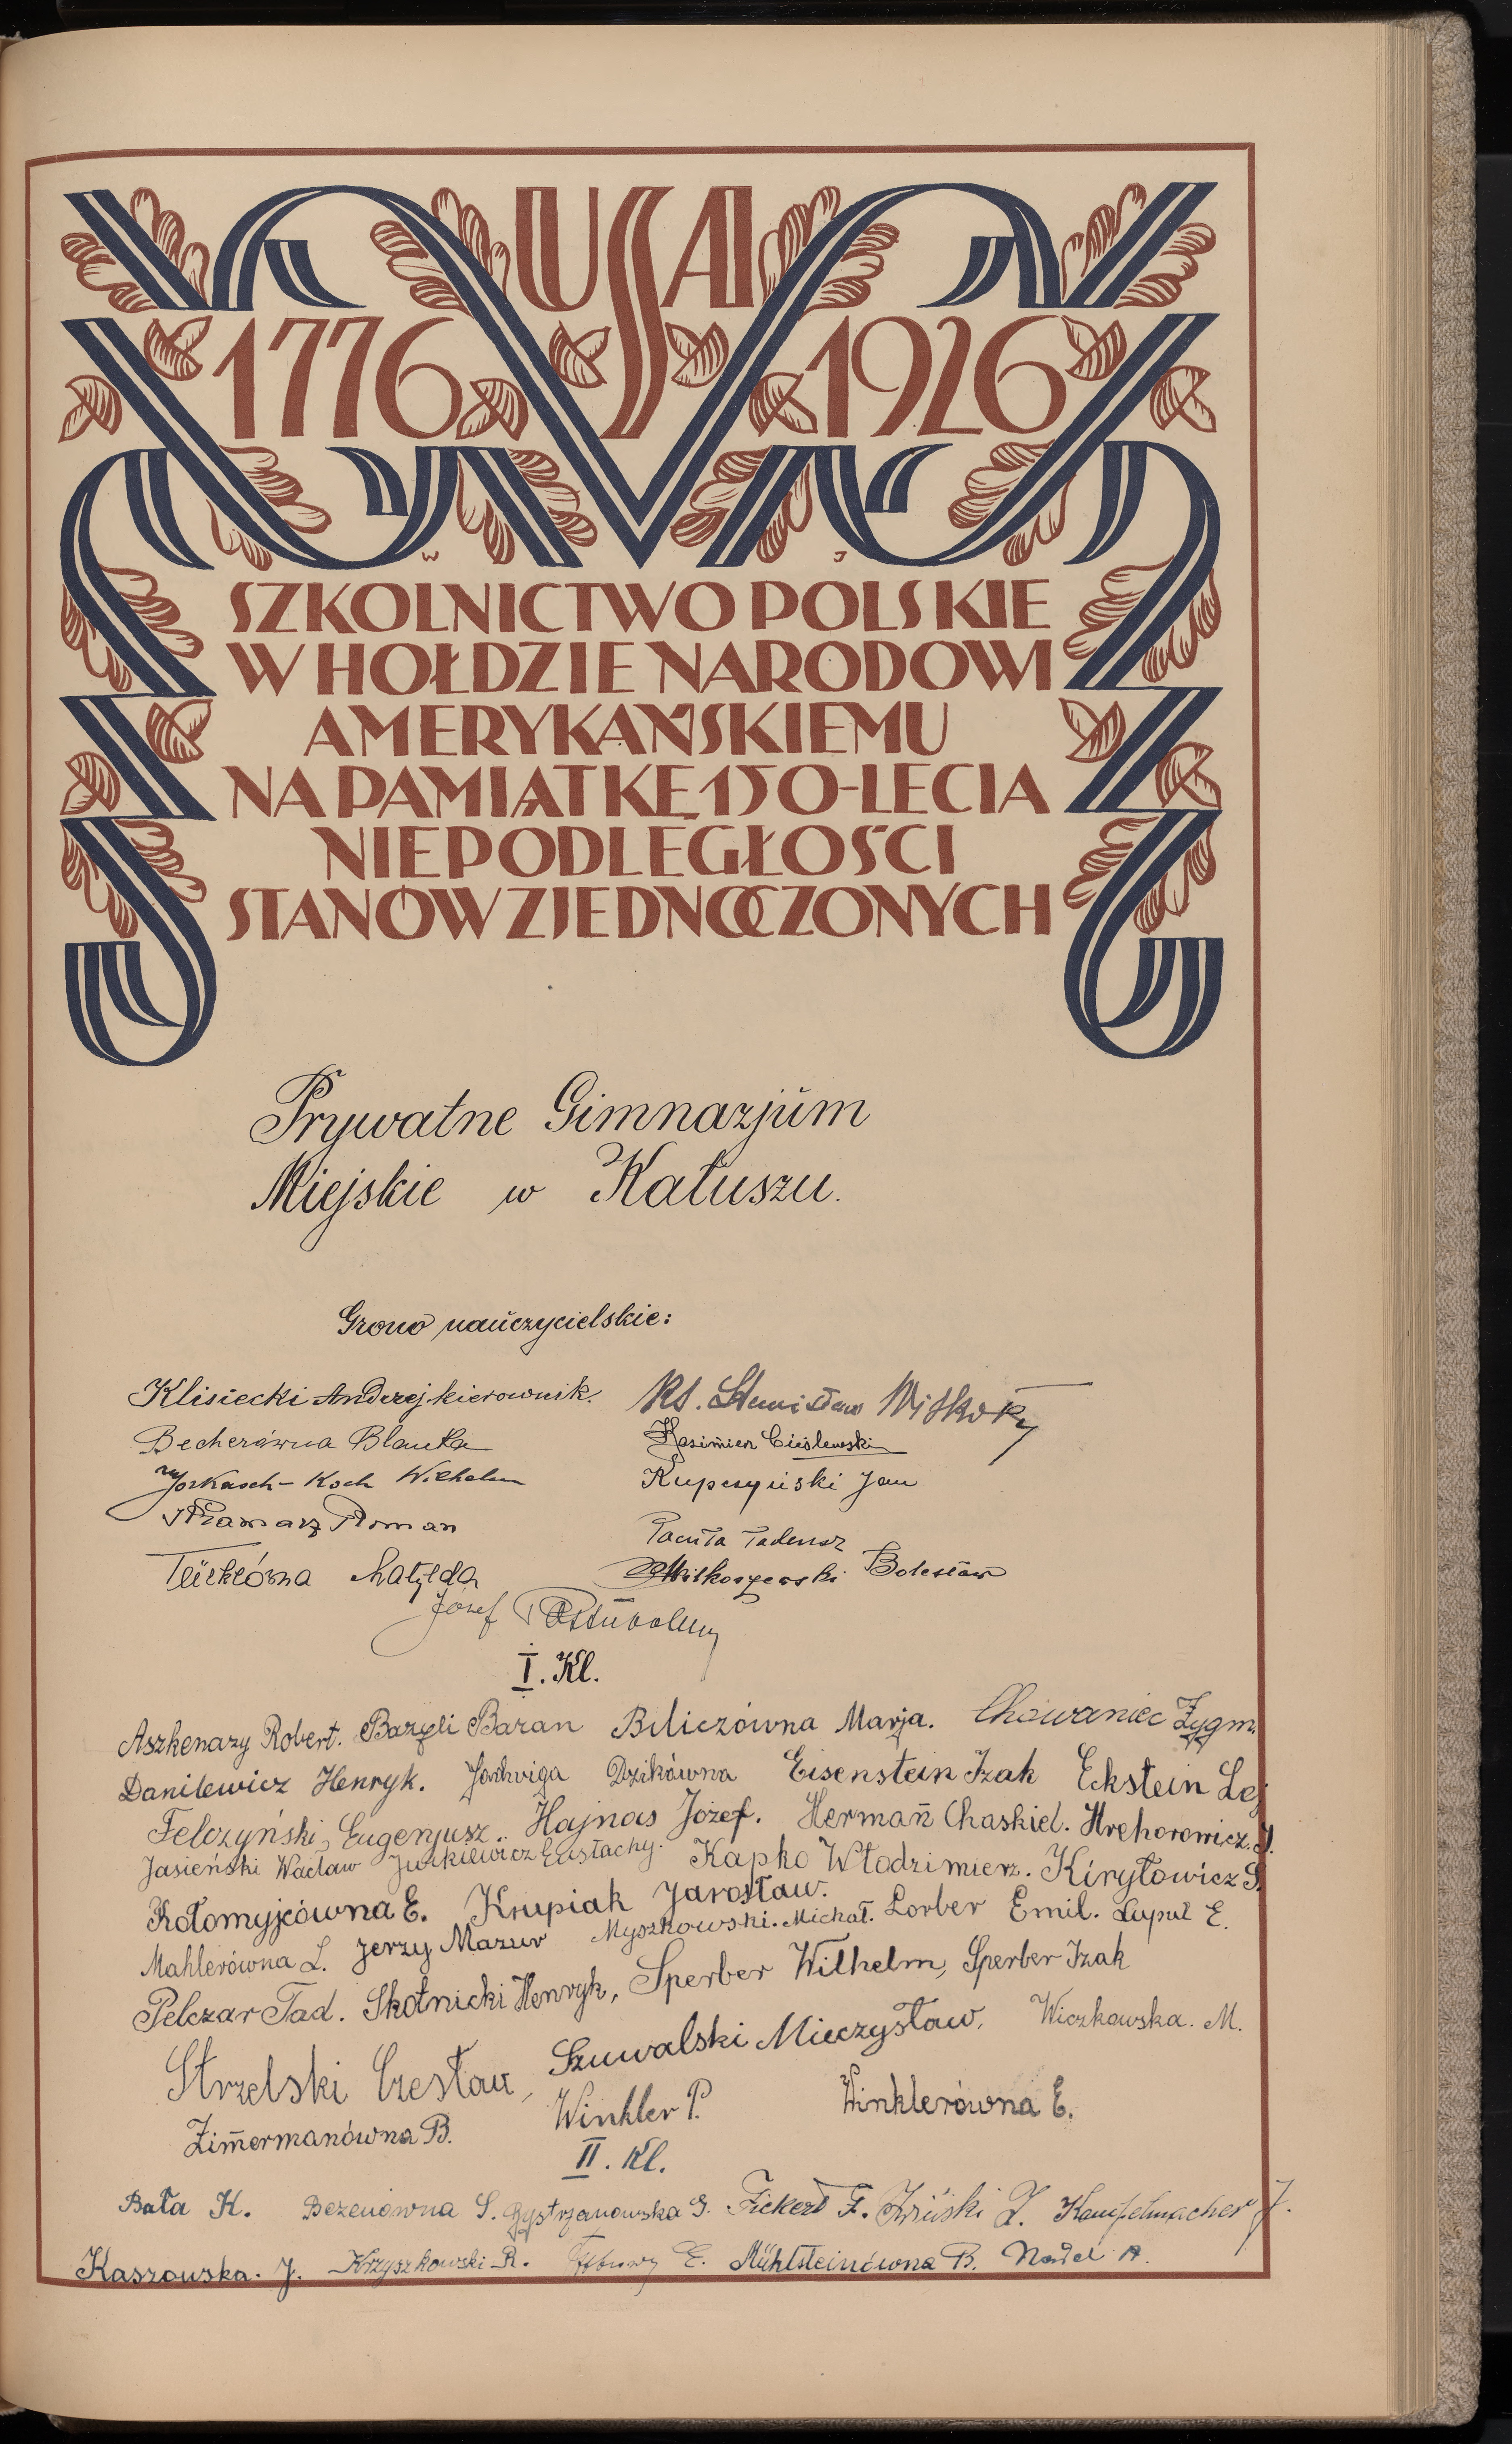 USA
1776 1926
W J
SZKOLNICTWO POLSKIE
W HOŁDZIE NARODOWI
AMERYKAŃSKIEMU
NA PAMIĄTKĘ 150-LECIA
NIEPODLEGŁOŚCI
STANÓW ZJEDNOCZONYCH
Prywatne Gimnazjum
Miejskie w Kałuszu.
Grono nauczycielskie:
Klisiecki Andrzej kierownik. Ks. Stanisław
Becherówna Blanka Kazimierz Cieślewski
Jorkasch-Koch Wilhelm Kupczyński Jan
Kramarz Roman Pacuła Tadeusz
Matylda Miłkoszewski Bolesław
Józef
I. Kl.
Aszkenazy Robert. Bazyli Baran Biliczówna Marja. Chowaniec Zygm.
Danilewicz Henryk. Jadwiga Dzikówna Eisenstein Izak Eckstein Lej
Felczyński Eugenjusz. Hajnas Józef. Hermañ Chaskiel. Hrehorowicz. J.
Jasieński Wacław Jurkiewicz Eustachy. Kapko Włodzimierz. Kiryłowicz S.
Kołomyjcówna E. Krupiak Jarosław. Lorber Emil. Łupul E.
Mahlerówna L. Jerzy Mazur Myszkowski. Michał.
Pelczar Tad. Skotnicki Henryk, Sperber Wilhelm, Sperber Izak
Strzelski Czesław, Szuwalski Mieczysław, Wiczkowska. M.
Zim̄ermanówna B. Winkler P. Winklerówna E.
II. Kl.
Bała K. Bezenówna S. Bystrzanowska G. Fickert F. Z. Kampelmacher J.
Kaszowska. J. Krzyszkowski R. E. Mühlsteinówna B. Nadel A.